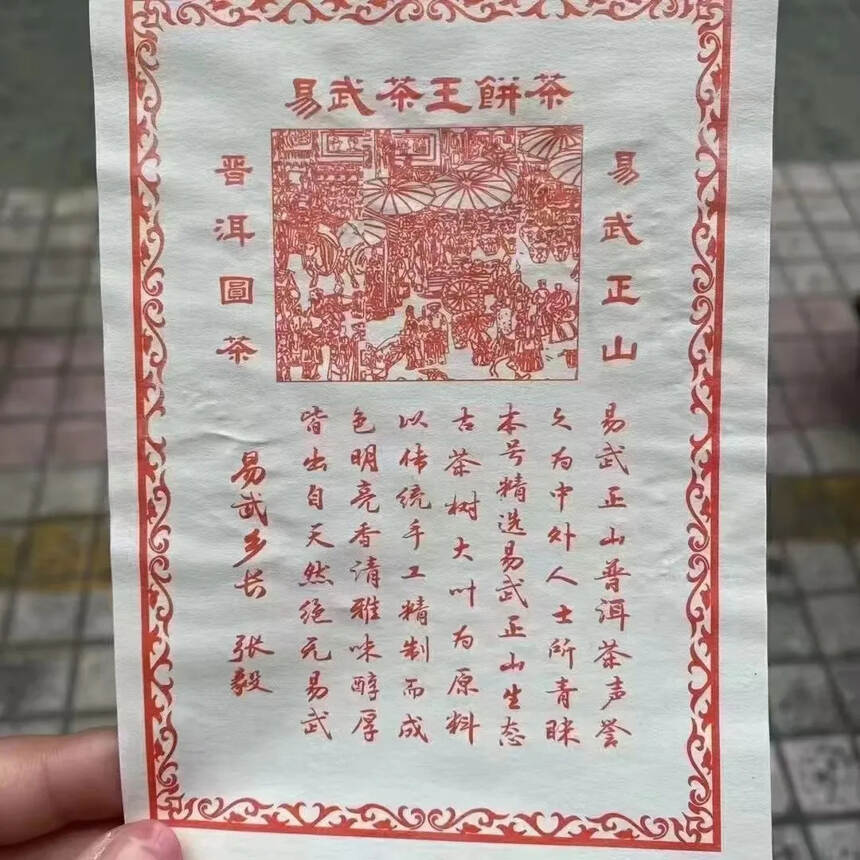 易武茶王餅茶
易武正山
普洱圓茶
易武正山普洱茶声誉
久为中外人士所青睐
本号精选易武正山生态
古茶树大叶为原料
以传统手工精制而成
色明亮香清雅味醇厚
皆出自天然绝无易武
易武乡长 张毅